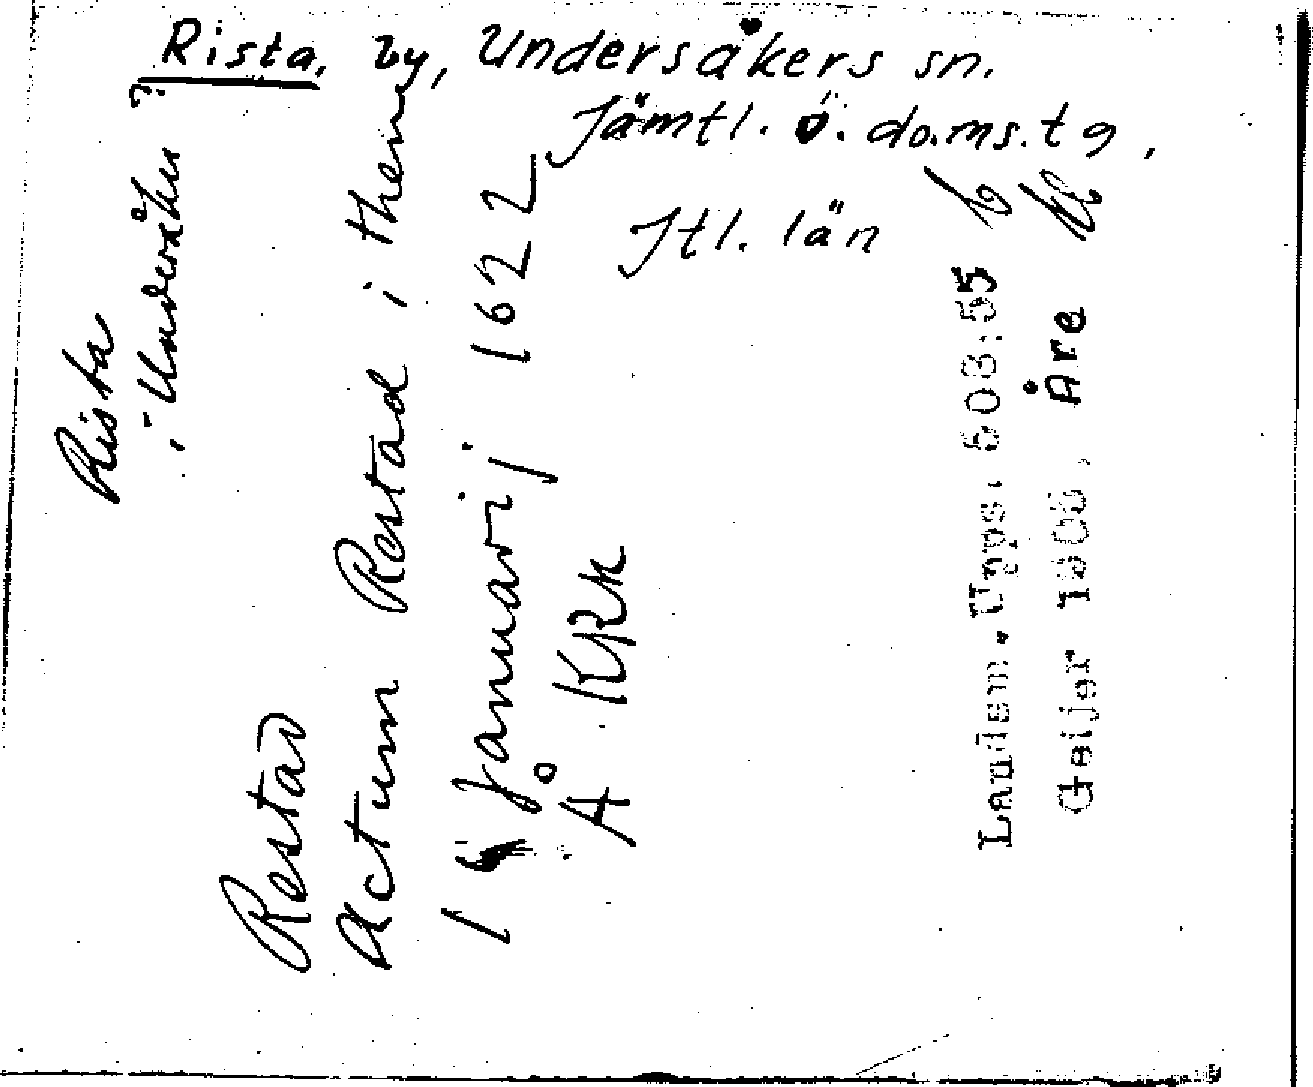 Rista, by, Undersåkers sn.
Jämtl. ö. doms.tg,
Jtl. län
Rista
i Undersåker ?
Restad
Actum Restad i then
januarij 1622
Å KRK
Landsm. Upps. 503:55
Geijer 1906, Åre